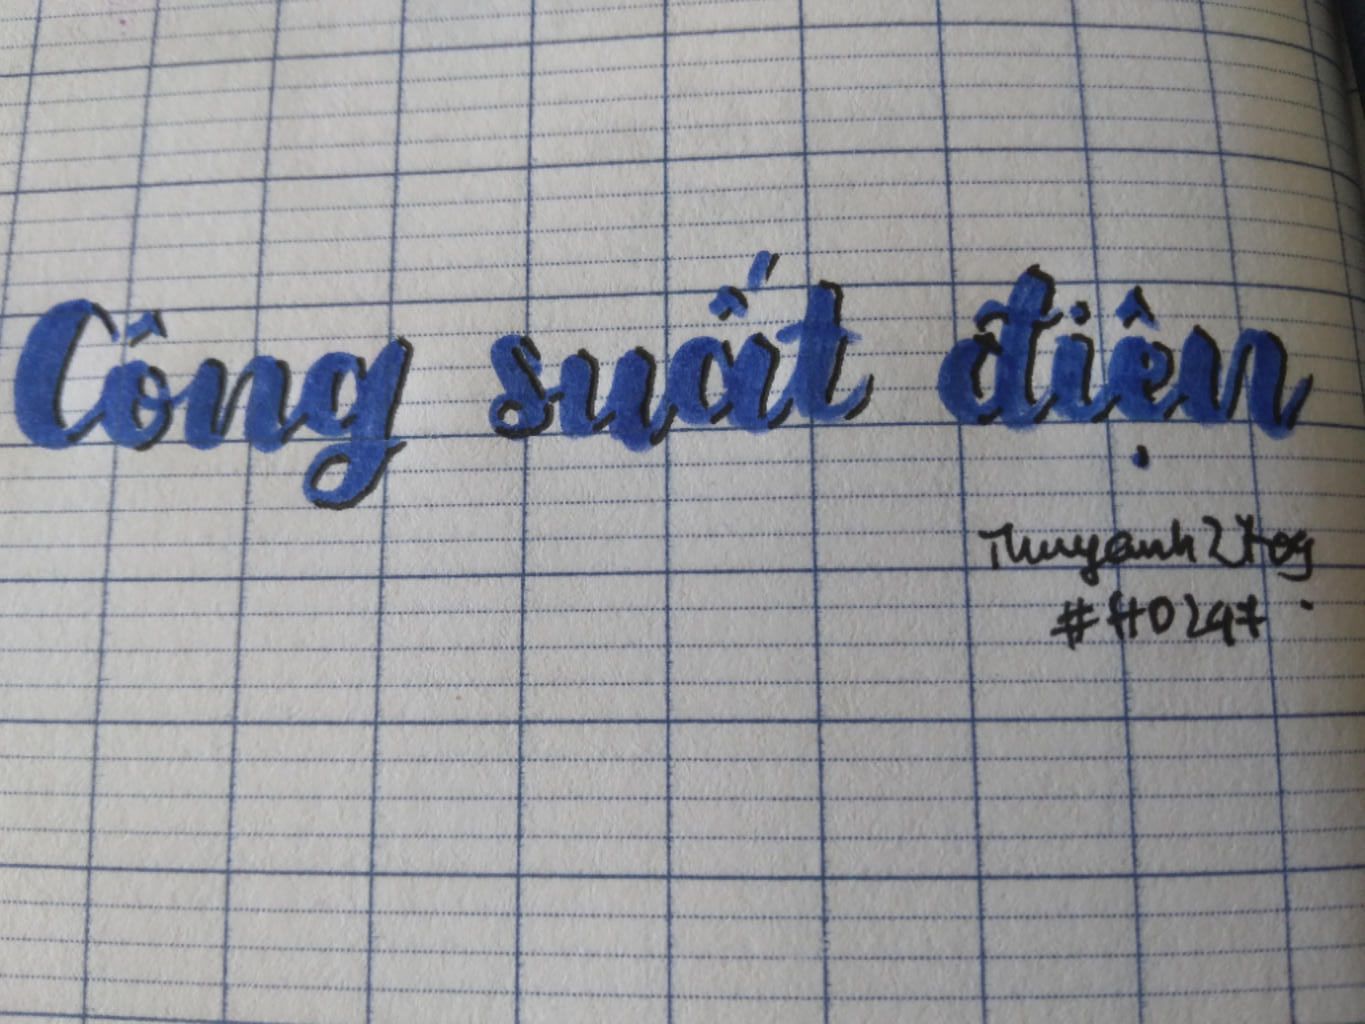 Công suất điện
Thuyanh2k09
#HD247